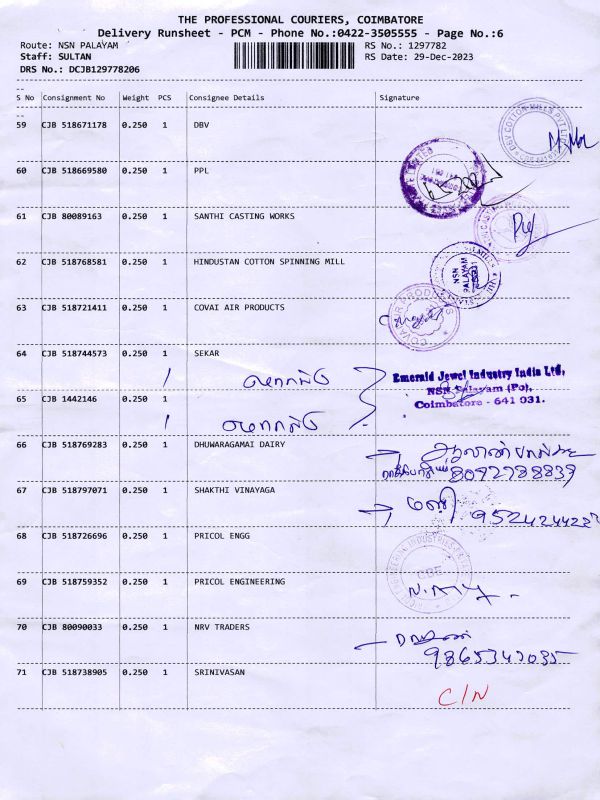 THE PROFESSIONAL COURIERS, COIMBATORE
Delivery Runsheet - PCM - Phone No.:0422-3505555 - Page No.:6
Route: NSN PALAYAM RS No.: 1297782
Staff: SULTAN RS Date: 29-Dec-2023
DRS No.: DCJB129778206
S No Consignment No Weight PCS Consignee Details Signature
59 CJB 518671178 0.250 1 DBV
60 CJB 518669580 0.250 1 PPL
61 CJB 80089163 0.250 1 SANTHI CASTING WORKS
62 CJB 518768581 0.250 1 HINDUSTAN COTTON SPINNING MILL
NSN
PALAYAM
63 CJB 518721411 0.250 1 COVAI AIR PRODUCTS
COVAI AIR PRODUCTS
64 CJB 518744573 0.250 1 SEKAR
Emerald Jewel Industry India Ltd,
NSN Palayam (Po),
Coimbatore - 641 031.
65 CJB 1442146 0.250 1
66 CJB 518769283 0.250 1 DHUWARAGAMAI DAIRY
8072788839
67 CJB 518797071 0.250 1 SHAKTHI VINAYAGA
மணி
68 CJB 518726696 0.250 1 PRICOL ENGG
CBE
69 CJB 518759352 0.250 1 PRICOL ENGINEERING
70 CJB 80090033 0.250 1 NRV TRADERS
9865347035
71 CJB 518738905 0.250 1 SRINIVASAN
C/N